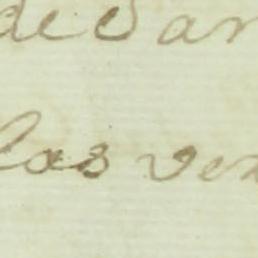 de San
las vez